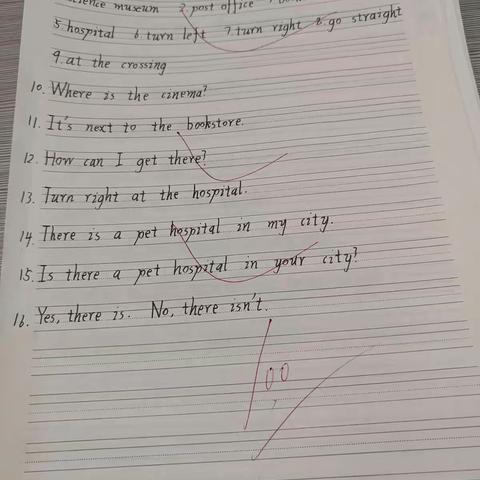 museum 2. post office
5. hospital 6. turn left 7. turn right 8. go straight
9. at the crossing
10. Where is the cinema?
11. It's next to the bookstore.
12. How can I get there?
13. Turn right at the hospital.
14. There is a pet hospital in my city.
15. Is there a pet hospital in your city?
16. Yes, there is. No, there isn't.
100